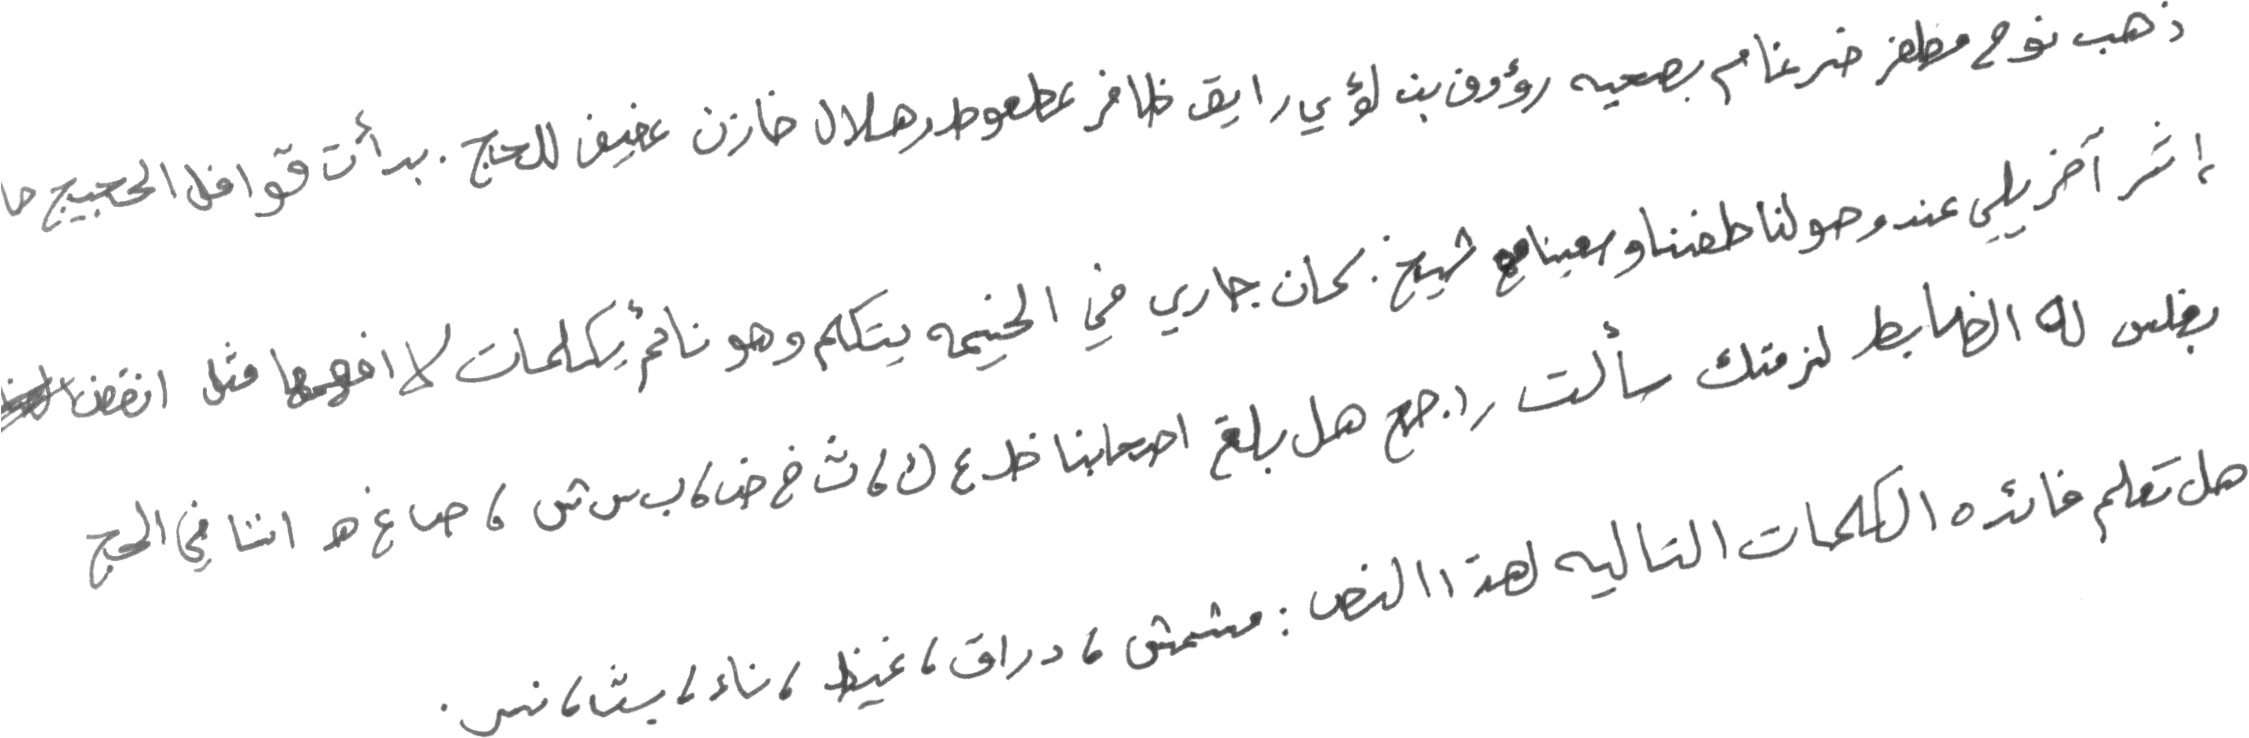 ذهب نوح مظفر ضرغام بصحبه رؤوف بن لؤي رايق ظافر عطعوط وهلال خازن عفيف للحج . بدأت قوافل الحجيج
إثر آخر يلي عند وصولنا طفنا وسعينا مع شيخ . كان جاري في الخيمه يتكلم وهو نائم بكلمات لا افهمها مثل انقض
بغلس له الضابط لزمتك سألت راجع هل بلغ اصحابنا ظ ع ك ، ث خ ض ، ب س ش ، ص غ ه اننا في الحج
هل تعلم فائده الكلمات التاليه لهذا النص : مشمش ، دراق ، غيظ ، ناء ، بث ، نس .